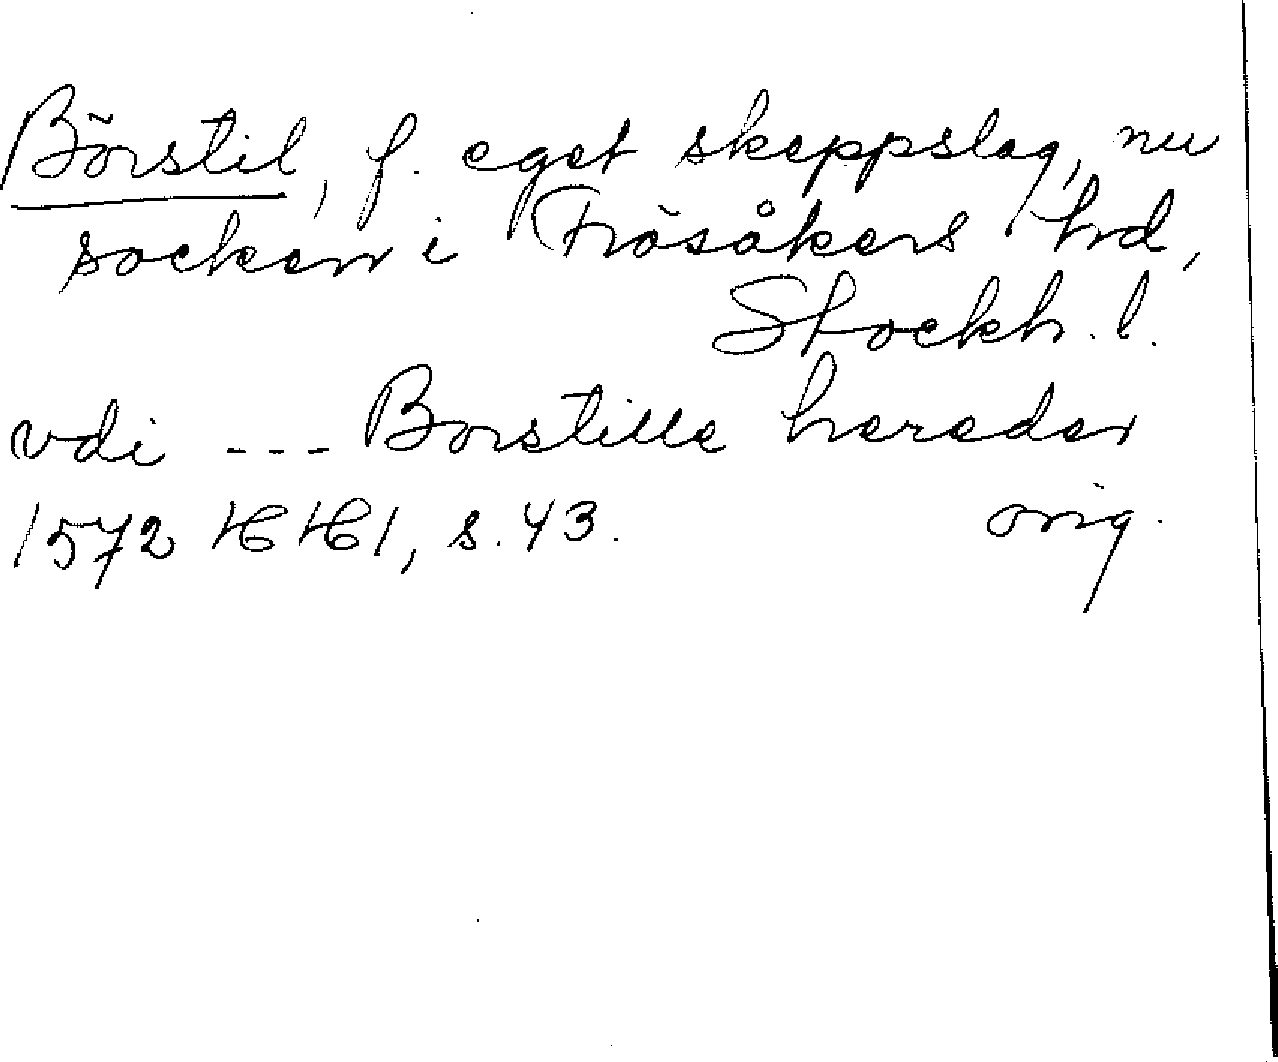 Börstil, f. eget skeppslag, nu
socken i Frösåkers hrd,
Stockh. l.
vdi --- Borstille hereder
1572 HH1, s. 43. orig.